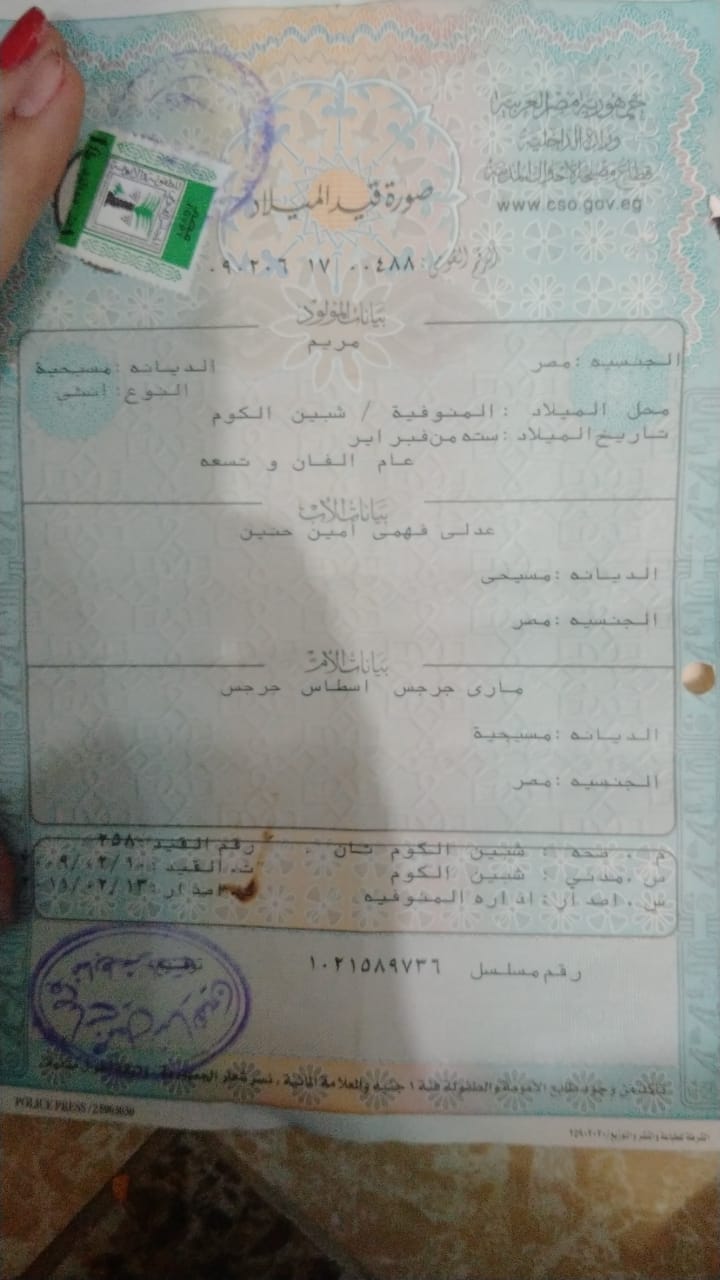 جمهورية مصر العربية
وزارة الداخلية
قطاع مصلحة الأحوال المدنية
www.cso.gov.eg
صورة قيد الميلاد
الرقم القومى: ٠٩٠٢٠٦ ١٧ ٠٠٤٨٨
بيانات المولود
مريم
الجنسيه : مصر
الديانه : مسيحية
النوع : انثى
محل الميلاد : المنوفية / شبين الكوم
تاريخ الميلاد : سته من فبراير
عام الفان و تسعه
بيانات الأب
عدلى فهمى امين حنين
الديانه : مسيحى
الجنسيه : مصر
بيانات الأم
مارى جرجس اسطاس جرجس
الديانه : مسيحية
الجنسيه : مصر
م . صحه : شبين الكوم ثان . رقم القيد : ٢٥٨
س . مدني : شبين الكوم ت . القيد : ٠٩/٠٢/١٠
س . اصدار : اداره المنوفيه اصدار : ١١/٠٢/١٣
رقم مسلسل ١٠٢١٥٨٩٧٣٦
تأكد من وجود طابع الأمومة والطفولة فئة ١ جنيه والعلامة المائية ، نسر شعار الجمهورية
POLICE PRESS / 28003030
الشرطة للطباعة والنشر والتوزيع